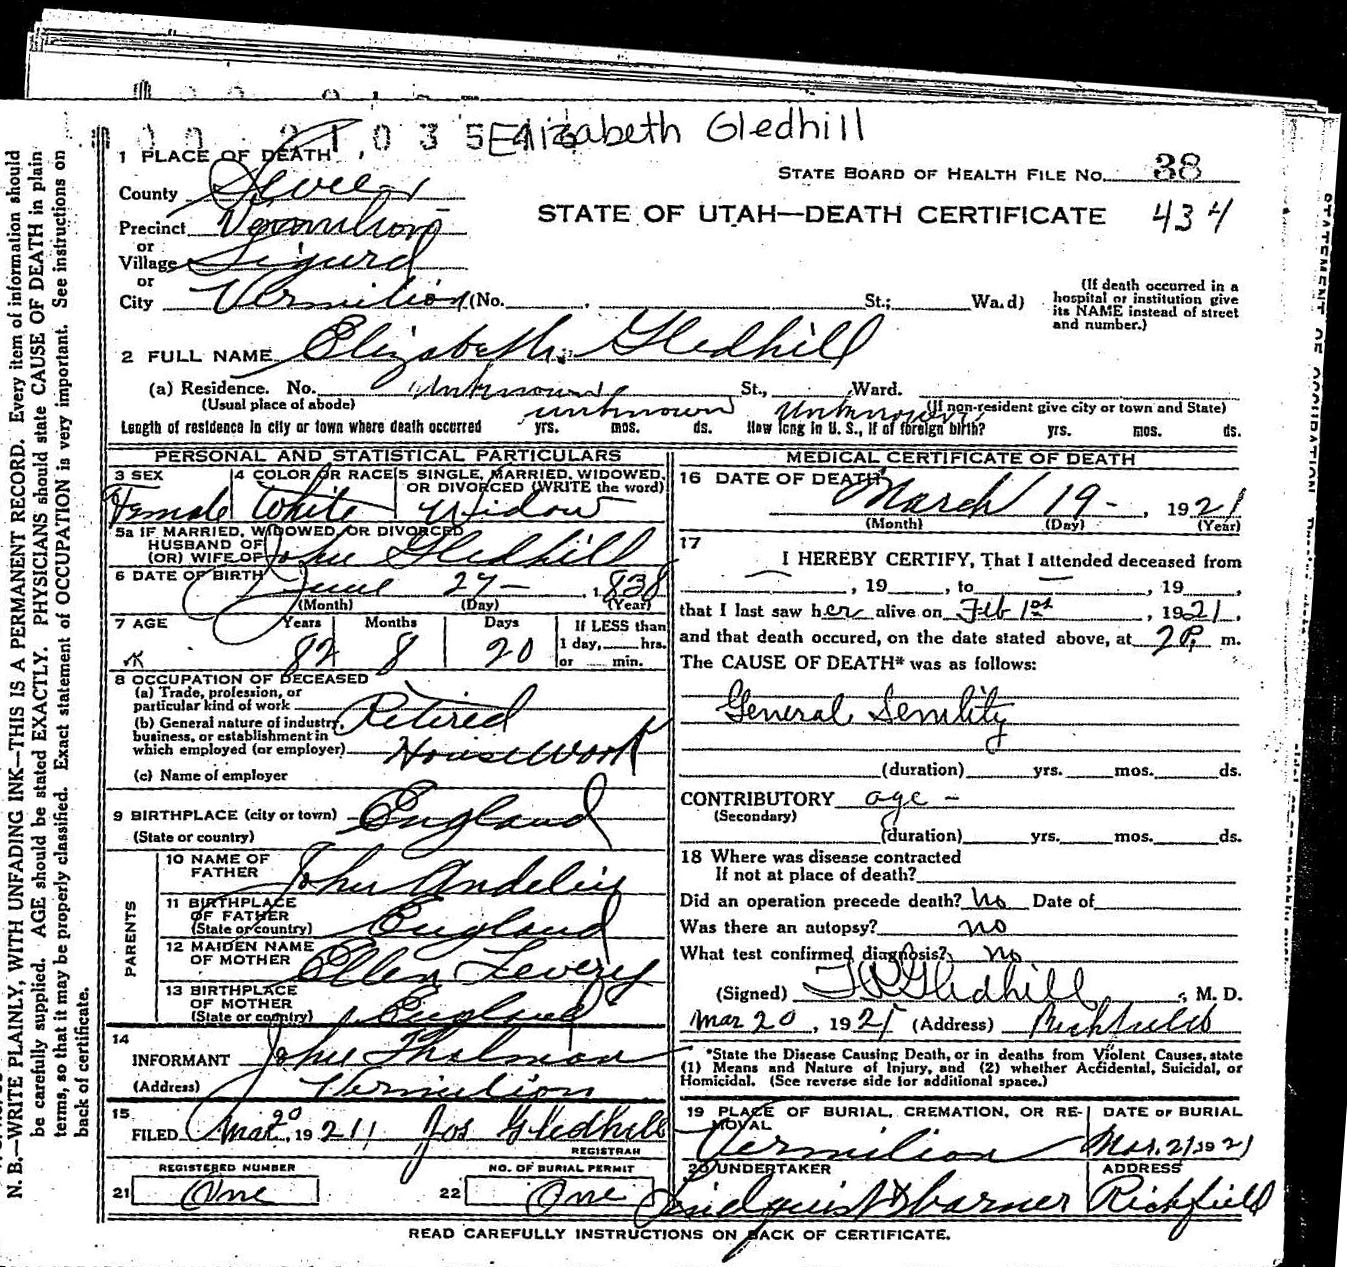 Elizabeth Gledhill
1 PLACE OF DEATH
STATE BOARD OF HEALTH FILE No. 38
County Sevier
STATE OF UTAH—DEATH CERTIFICATE 434
Precinct Vermilion
or
Village Sigurd
or
City Vermilion (No. , St.; Wa.d)
(If death occurred in a hospital or institution give its NAME instead of street and number.)
2 FULL NAME Elizabeth Gledhill
(a) Residence. No. Unknown St., Ward.
(Usual place of abode) (If non-resident give city or town and State)
Length of residence in city or town where death occurred unknown yrs. mos. ds. How long in U. S., if of foreign birth? Unknown yrs. mos. ds.
PERSONAL AND STATISTICAL PARTICULARS
3 SEX Female
4 COLOR OR RACE White
5 SINGLE, MARRIED, WIDOWED, OR DIVORCED (WRITE the word) Widow
5a IF MARRIED, WIDOWED, OR DIVORCED
HUSBAND OF
(OR) WIFE OF John Gledhill
6 DATE OF BIRTH June 27 - , 1838
(Month) (Day) (Year)
7 AGE Years Months Days If LESS than
82 8 20 1 day, hrs.
or min.
8 OCCUPATION OF DECEASED
(a) Trade, profession, or
particular kind of work Retired
(b) General nature of industry,
business, or establishment in
which employed (or employer) Housework
(c) Name of employer
9 BIRTHPLACE (city or town) England
(State or country)
PARENTS
10 NAME OF FATHER John Andelin
11 BIRTHPLACE OF FATHER (State or country) England
12 MAIDEN NAME OF MOTHER Ellen
13 BIRTHPLACE OF MOTHER (State or country) England
14
INFORMANT John
(Address) Vermilion
15
FILED Mar 20, 1921, Jos Gledhill
REGISTRAR
REGISTERED NUMBER NO. OF BURIAL PERMIT
21 One 22 One
MEDICAL CERTIFICATE OF DEATH
16 DATE OF DEATH March 19 - , 1921
(Month) (Day) (Year)
17
I HEREBY CERTIFY, That I attended deceased from
— , 19 , to — , 19 ,
that I last saw her alive on Feb 1st , 1921,
and that death occured, on the date stated above, at 2 P. m.
The CAUSE OF DEATH* was as follows:
General Senility
(duration) yrs. mos. ds.
CONTRIBUTORY age -
(Secondary)
(duration) yrs. mos. ds.
18 Where was disease contracted
If not at place of death?
Did an operation precede death? No Date of
Was there an autopsy? no
What test confirmed diagnosis? No
(Signed) Gledhill , M. D.
Mar 20 , 1921 (Address) Richfield
*State the Disease Causing Death, or in deaths from Violent Causes, state
(1) Means and Nature of Injury, and (2) whether Accidental, Suicidal, or
Homicidal. (See reverse side for additional space.)
19 PLACE OF BURIAL, CREMATION, OR REMOVAL DATE OF BURIAL
Vermilion Mar. 21 1921
20 UNDERTAKER ADDRESS
Richfield
READ CAREFULLY INSTRUCTIONS ON BACK OF CERTIFICATE.
N. B.—WRITE PLAINLY, WITH UNFADING INK—THIS IS A PERMANENT RECORD. Every item of information should
be carefully supplied. AGE should be stated EXACTLY. PHYSICIANS should state CAUSE OF DEATH in plain
terms, so that it may be properly classified. Exact statement of OCCUPATION is very important. See instructions on
back of certificate.